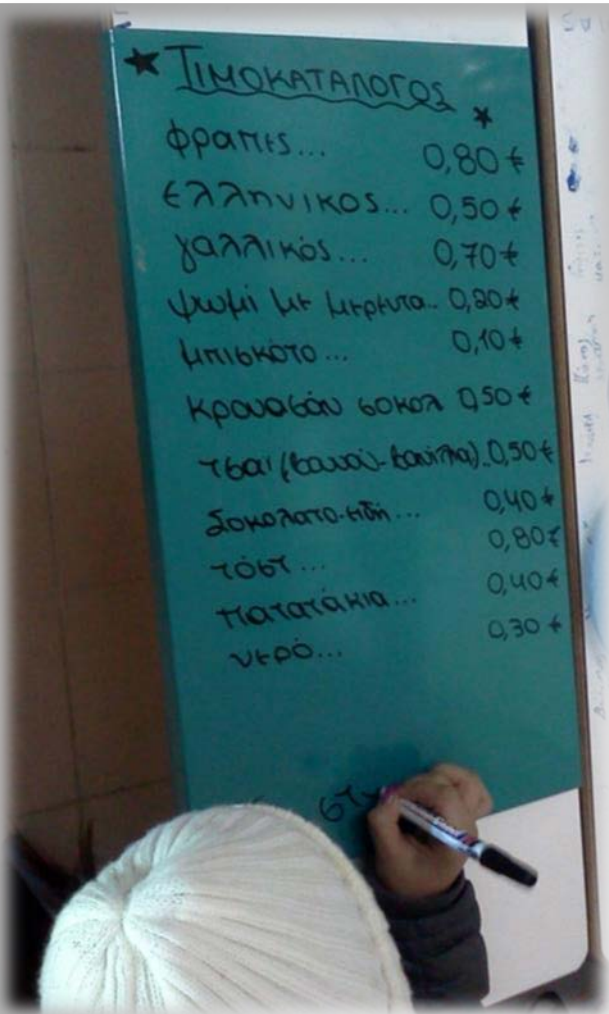 ★ ΤΙΜΟΚΑΤΑΛΟΓΟΣ ★
φραπες... 0,80 €
ελληνικος... 0,50 €
γαλλικός... 0,70 €
ψωμί με μερεντα.. 0,20 €
μπισκότο... 0,10 €
κρουασάν σοκολ 0,50 €
τσαι (βουνού-βανίλια)..0,50 €
Σοκολατο-ειδή... 0,40 €
τόστ... 0,80 €
πατατάκια... 0,40 €
νερό... 0,30 €